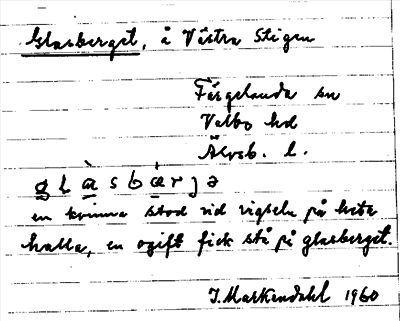 Glasberget, å Västra Stigen
Färgelanda sn
Valbo hd
Älvsb. l.
glàsbárjə
en kvinna stod vid vigseln på heta
halla, en ogift fick stå på glasberget.
J. Markendahl 1960